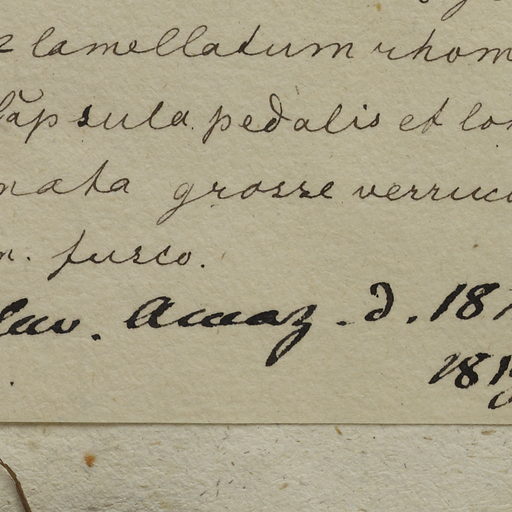 lamellatum rhom
Căpsula pedalis et lon
nata grosse verruco
m. fusco.
luv. Amaz. d. 18
1819